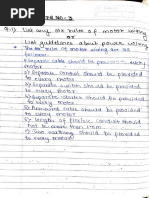 Q.1) List any six rules of motor wiring
or
List guidelines about power wiring
The six rules of motor wiring are as
follows
1) Separate cable should be provided to every
motor
2) Separate conduit should be provided
to every motor
3) Separate switch should be provided
to every motor
4) Separate starter should be provided
to every motor
cable should be provided
to every motor
6) Length of flexible conduit should not
be more than
7) Two earthing should be provided
to every motor